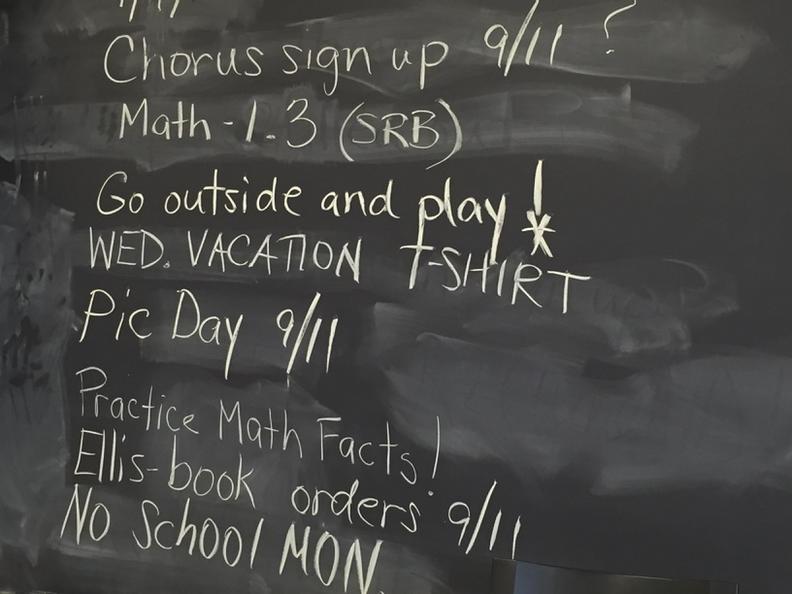 Chorus sign up 9/11 ?
Math - 1.3 (SRB)
Go outside and play !
WED. VACATION T-SHIRT
Pic Day 9/11
Practice Math Facts!
Ellis-book orders 9/11
No School MON.